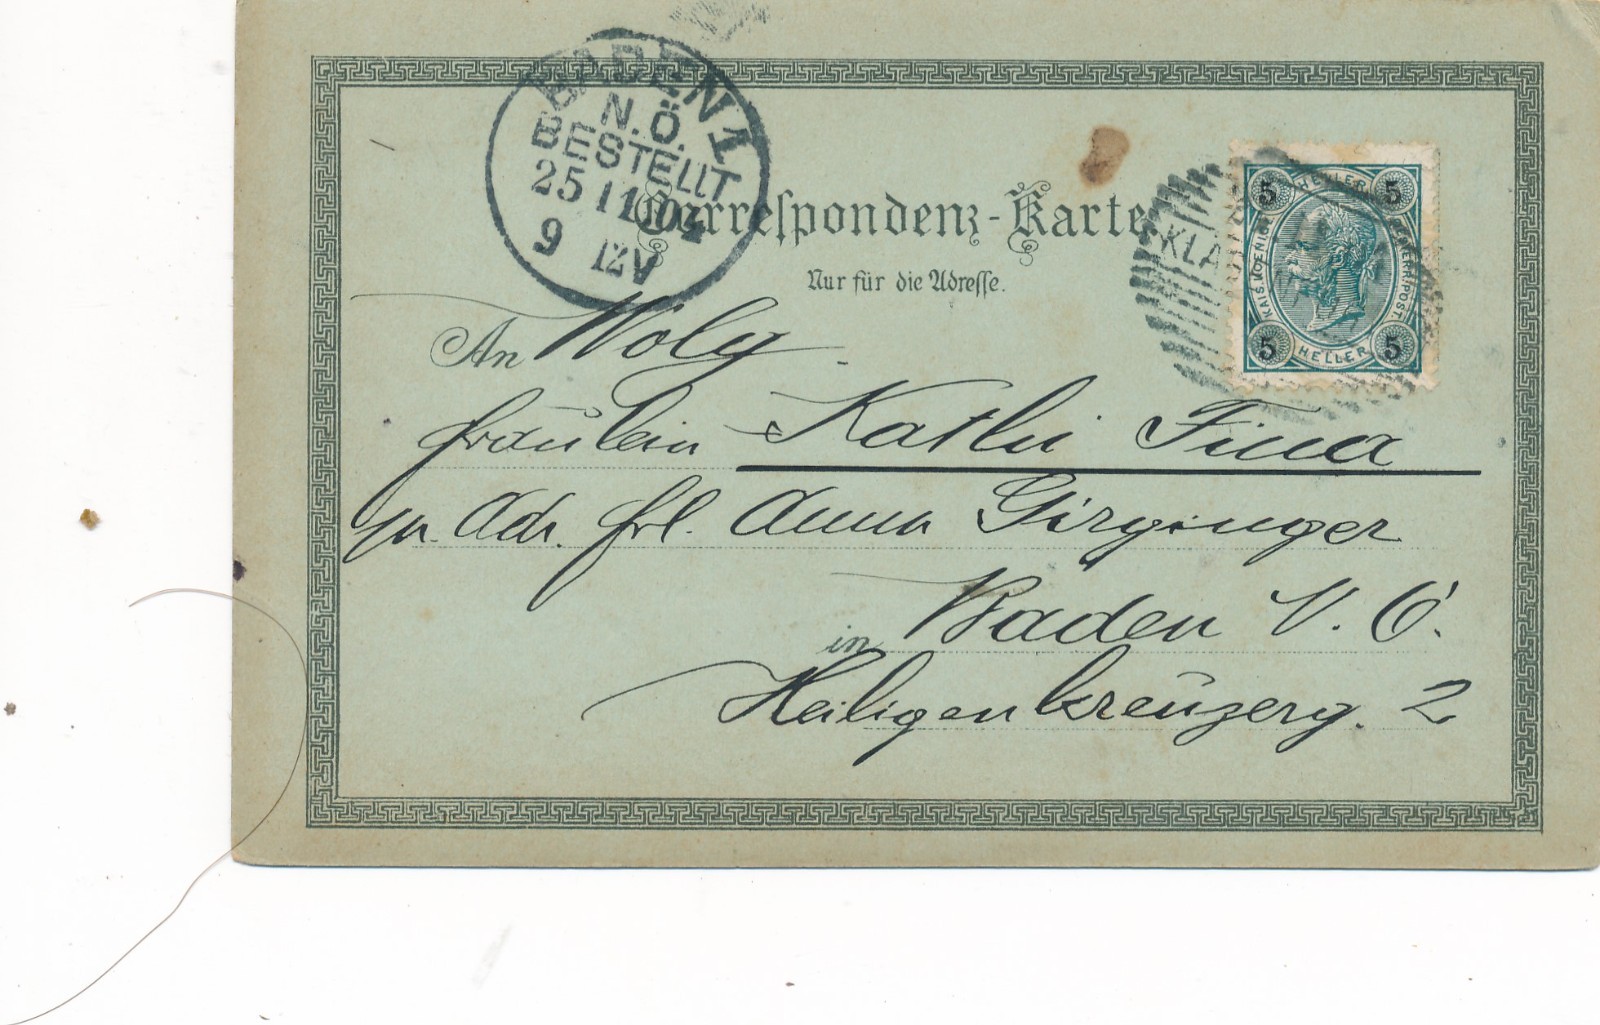 BADEN 1
N.Ö.
BESTELLT
25 11 04
9 12V
Correspondenz-Karte
Nur für die Adresse.
KLA
5 HELLER 5
KAIS. KOENIGL. OESTERR. POST.
5 HELLER 5
An Wolg.
Fräulein Kathi Fina
pr. Adr. Frl. Anna Girginger
in Baden N. Ö.
Heiligenkreuzerg. 2